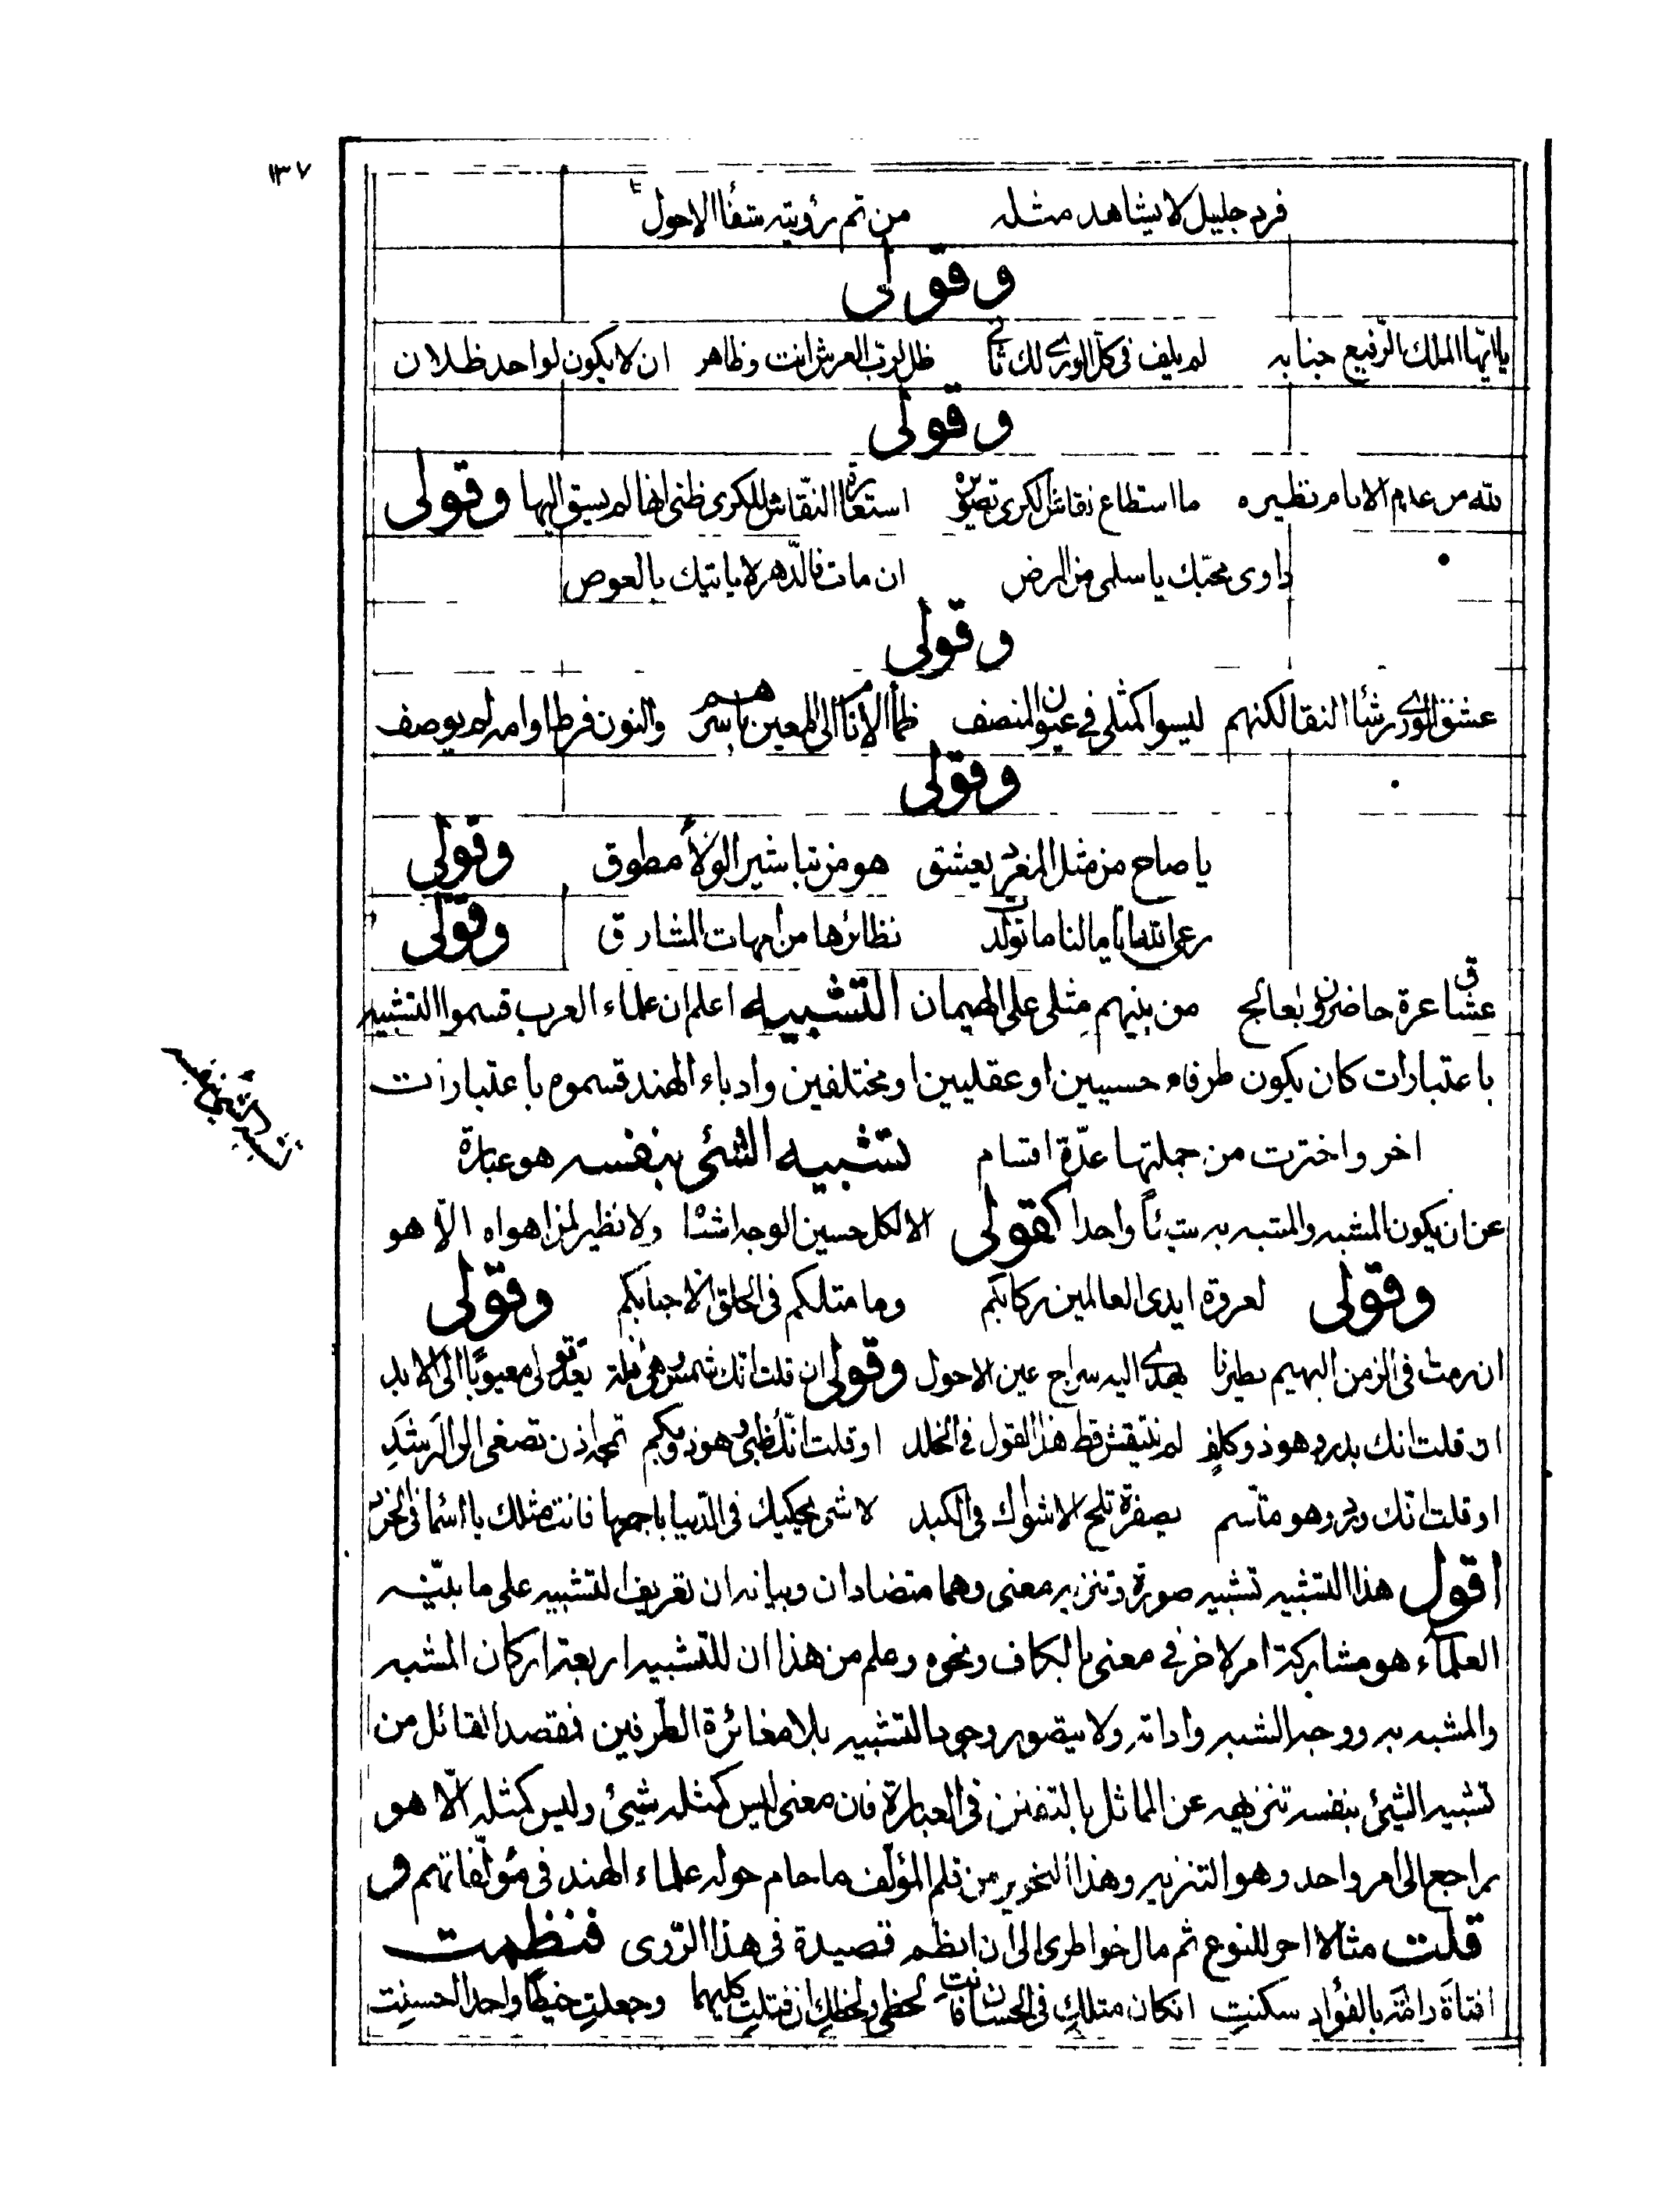 ١٣٧
فرد جليل لا يشاهد مثله من تم رؤيته شفأ الاحول
وقولى
ياايّها الملك الرّفيع جنابه لم يلف فى كلّ الورى لك ثانى ظل لربّ العرش انت وظاهر ان لا يكون لواحد ظلان
وقولى
لله من عدم الانام نظيره ما استطاع نقاش الكرى تصويره استعارة النقّاش للكرى ظنى انها لم يسبق اليها وقولى
داوى محبّك يا سلمى من المرض ان مات فالدّهر لا ياتيك بالعوض
وقولى
عشق الورى رشأ النقا لكنهم ليسوا كمثلى فى عيون المنصف ظمأ الانام الى المعين باسرهم والنون فرط اوامه لم يوصف
وقولى
يا صاح من مثل المغرد يعشق هو من تباشير الولأ مطوق وقولى
رعى الله اياما لنا ما تولدت نظائرها من امهات المشارق وقولى
عشاق عزة حاضرون بعالج من بينهم مثلى على الهيمان التشبيه اعلم ان علماء العرب قسموا التشبيه
باعتبارات كان يكون طرفاه حسيين او عقليين او مختلفين وادباء الهند قسموه باعتبارات
تشبيه الشئ بنفسه
اخر واخترت من جملتها عدّة اقسام تشبيه الشئ بنفسه هو عبارة
عن ان يكون المشبه والمشبه به شيئاً واحدا كقولى الا لكل حسين الوجه اشباه ولا نظير لمن اهواه الاّ هو
وقولى لعروة ايدى العالمين ركابكم وما مثلكم فى الخلق الا جنابكم وقولى
ان رمت فى الزمن البهيم نظيرنا يهدى اليه سراج عين الاحول وقولى ان قلت انك شمس وهى تعد قولى معيوبًا الى الابد
او قلت انك بدر وهو ذو كلف لم ينتقش قط هذا القول فى الخلد او قلت انّك ظبى وهو ذو بكم تمجه اذن تصغى الى الرشد
او قلت انّك ورد وهو متّسم بصفرة تلج الاشواك فى الكبد لا شئ يحكيك فى الدّنيا باجمعها فانت مثلك يا اسما فى الخرد
اقول هذا التشبيه تشبيه صورة وتنزيه معنى وهما متضادان وبيانه ان تعريف التشبيه على ما بيّنه
العلمآء هو مشاركة امر لاخر فى معنى بالكاف ونحوه وعلم من هذا ان للتشبيه اربعة اركان المشبه
والمشبه به ووجه الشبه واداته ولا يتصور وجود التشبيه بلا مغائرة الطرفين فقصد القائل من
تشبيه الشيئ بنفسه تنزيهه عن المماثل بالتفنن فى العبارة فان معنى ليس كمثله شيئ وليس كمثله الّا هو
راجع الى امر واحد وهو التنزيه وهذا التحرير من قلم المؤلف ما حام حوله علماء الهند فى مئولّفاتهم و
قلت مثالا اخر للنوع ثم مال خواطرى الى ان انظم قصيدة فى هذا الرّوى فنظمت
افتاة رامة بالفؤاد سكنتِ ان كان مثلكِ فى الحسان فانتِ لحظى ولحظكِ ان قتلتِ كليهما وجعلتِ واحدا احسنتِ